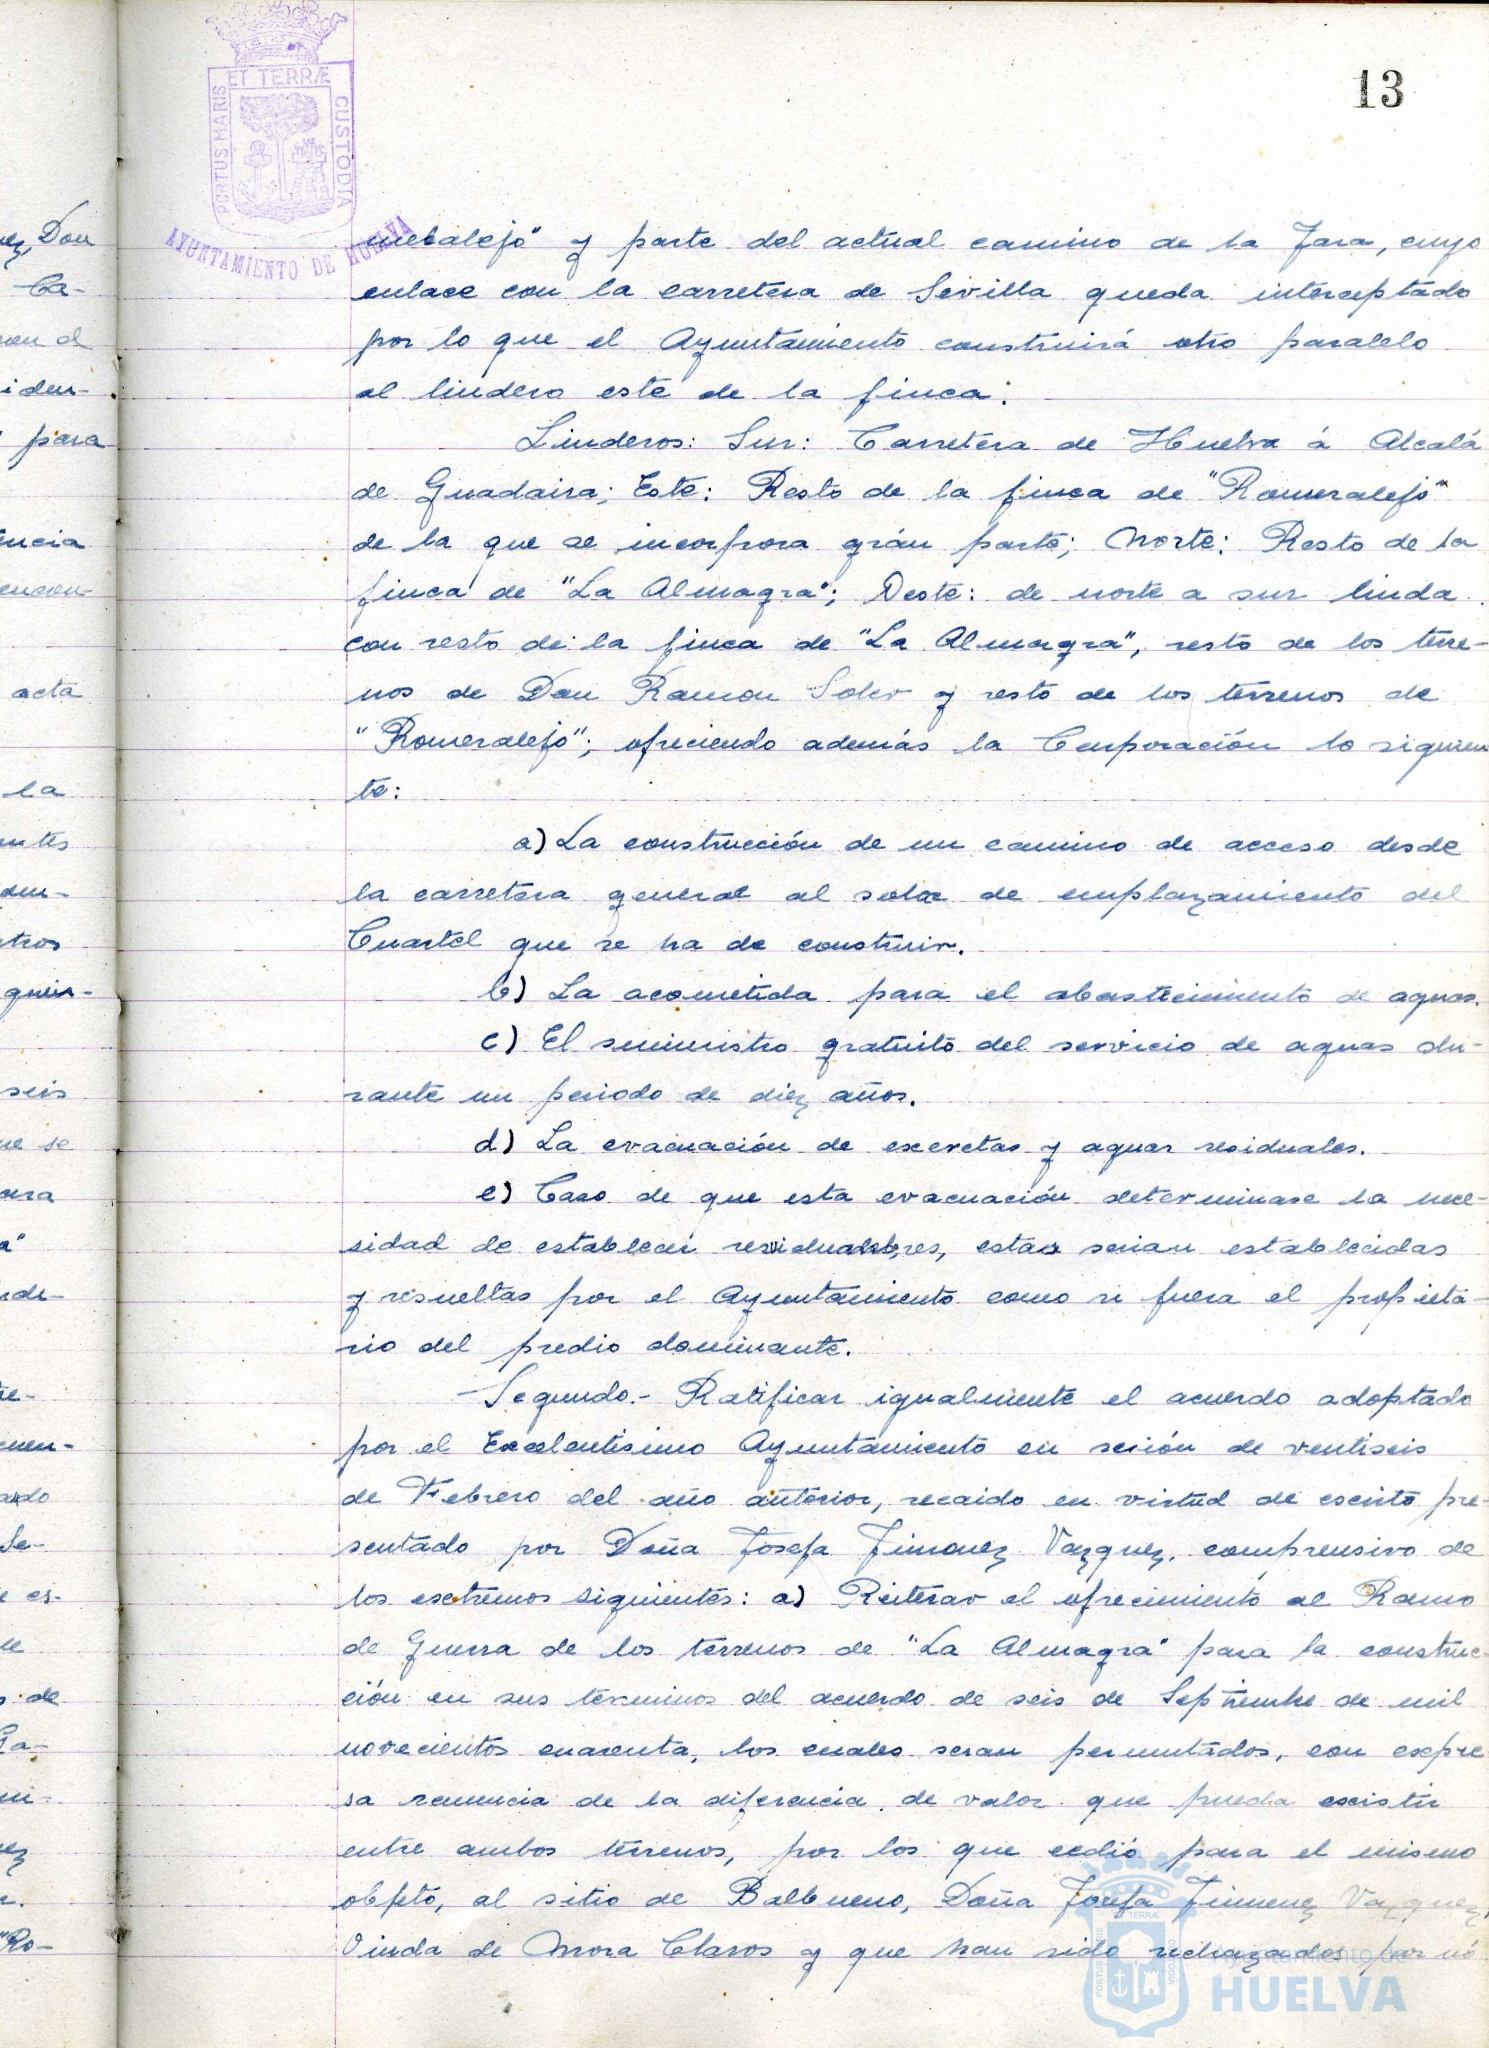 13
ET TERRÆ
PORTUS MARIS
CUSTODIA
AYUNTAMIENTO DE HUELVA
y parte del actual camino de la Jara, cuyo
enlace con la carretera de Sevilla queda interceptado
por lo que el Ayuntamiento construirá otro paralelo
al lindero este de la finca:
Linderos: Sur: Carretera de Huelva á Alcalá
de Guadaira; Este: Resto de la finca de "Romeralejo"
de la que se incorpora grán parte; Norte: Resto de la
finca de "La Almagra"; Oeste: de norte a sur linda
con resto de la finca de "La Almagra", resto de los terre-
nos de Don Ramon Soler y resto de los terrenos de
"Romeralejo"; ofreciendo además la Corporación lo siguien
te:
a) La construcción de un camino de acceso desde
la carretera general al solar de emplazamiento del
Cuartel que se ha de construir.
b) La acometida para el abastecimiento de aguas.
c) El suministro gratuito del servicio de aguas du-
rante un periodo de diez años.
d) La evacuación de excretas y aguas residuales.
e) Caso de que esta evacuación determinase la nece-
sidad de establecer estas serian establecidas
y resueltas por el Ayuntamiento como si fuera el propieta-
rio del predio dominante.
Segundo.- Ratificar igualmente el acuerdo adoptado
por el Excelentisimo Ayuntamiento en sesión de ventiseis
de Febrero del año anterior, recaido en virtud de escrito pre-
sentado por Doña Josefa Jimenez Vazquez, comprensivo de
los extremos siguientes: a) Reiterar el ofrecimiento al Ramo
de Guerra de los terrenos de "La Almagra" para la construc-
ción en sus terminos del acuerdo de seis de Septiembre de mil
novecientos cuarenta, los cuales seran permutados, con expre
sa renuncia de la diferencia de valor que pueda existir
entre ambos terrenos, por los que cedió para el mismo
objeto, al sitio de Balbueno, Doña Josefa Jimenez Vazquez,
Viuda de Mora Claros y que han sido rechazados por nó
Ayuntamiento de
HUELVA